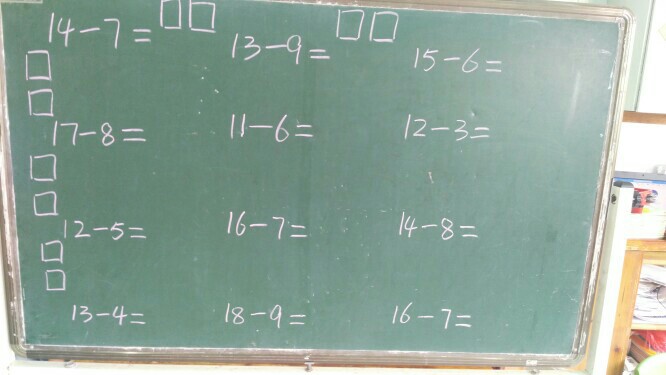 14-7= 13-9= 15-6=
17-8= 11-6= 12-3=
12-5= 16-7= 14-8=
13-4= 18-9= 16-7=